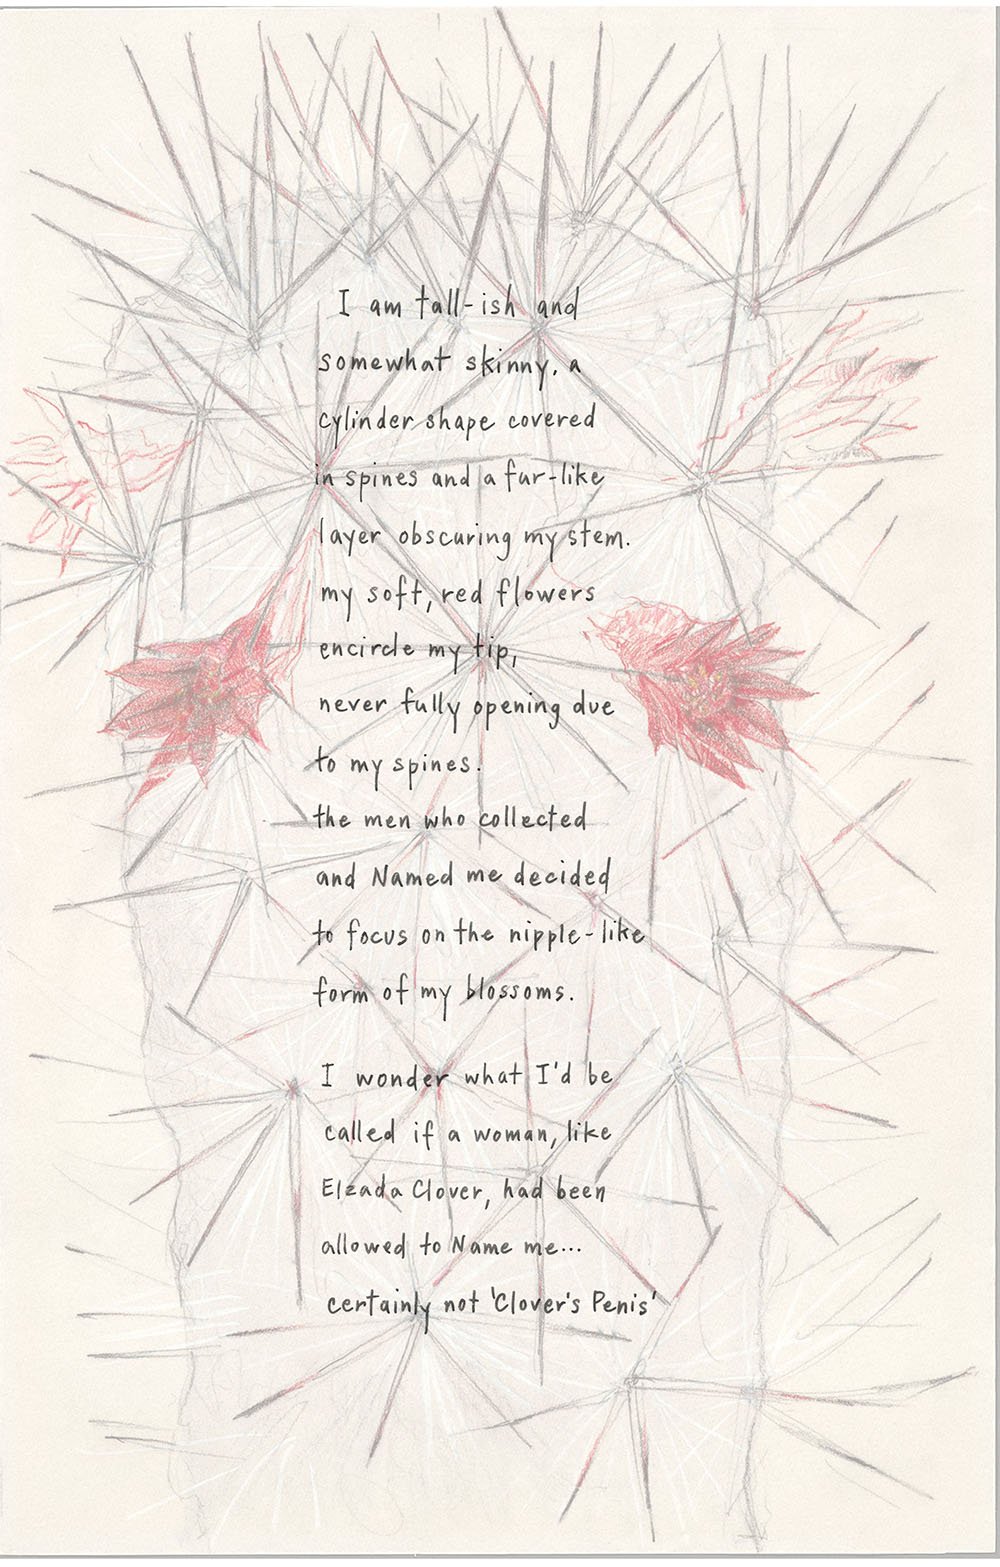 I am tall-ish and
somewhat skinny, a
cylinder shape covered
in spines and a fur-like
layer obscuring my stem.
my soft, red flowers
encircle my tip,
never fully opening due
to my spines.
the men who collected
and Named me decided
to focus on the nipple-like
form of my blossoms.
I wonder what I'd be
called if a woman, like
Elzada Clover, had been
allowed to Name me...
certainly not 'Clover's Penis'